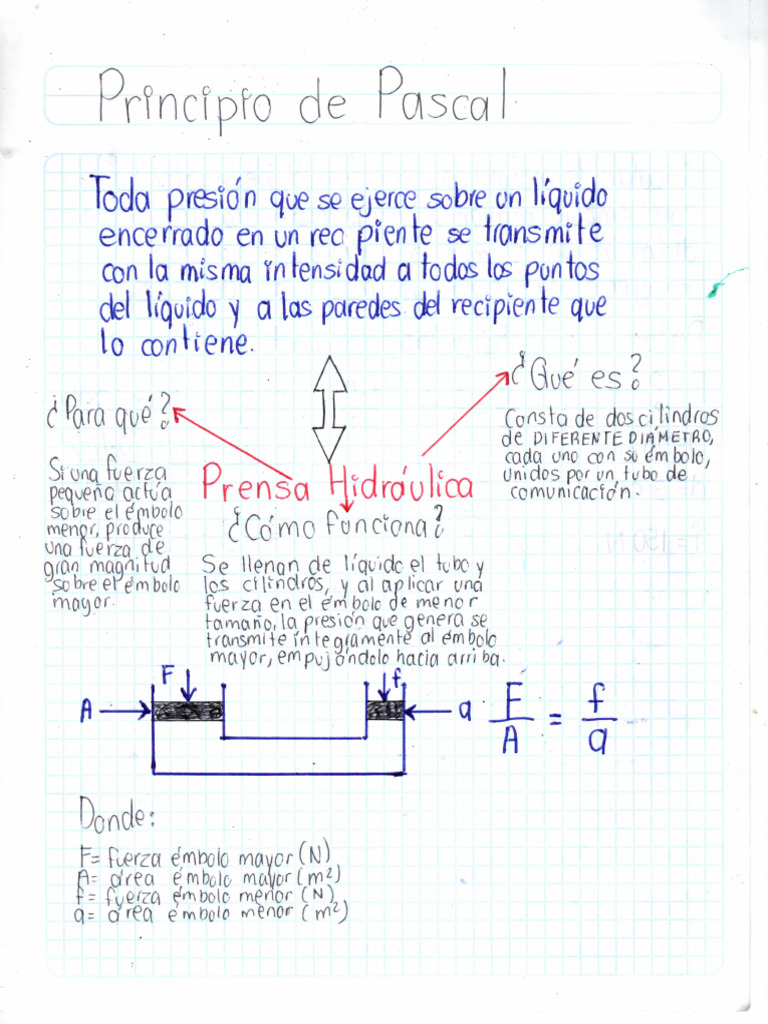 Principio de Pascal
Toda presión que se ejerce sobre un líquido
encerrado en un rec piente se transmite
con la misma intensidad a todos los puntos
del líquido y a las paredes del recipiente que
lo contiene.
¿Para qué?
Si una fuerza
pequeña actúa
sobre el émbolo
menor, produce
una fuerza de
gran magnitud
sobre el émbolo
mayor.
¿Qué es?
Consta de dos cilindros
de DIFERENTE DIÁMETRO,
cada uno con su émbolo,
unidos por un tubo de
comunicación.
Prensa Hidráulica
¿Cómo funciona?
Se llenan de líquido el tubo y
los cilindros, y al aplicar una
fuerza en el émbolo de menor
tamaño, la presión que genera se
transmite íntegramente al émbolo
mayor, empujándolo hacia arriba.
F
f
A
a
F/A = f/a
Donde:
F= fuerza émbolo mayor (N)
A= área émbolo mayor (m²)
f= fuerza émbolo menor (N)
a= área émbolo menor (m²)